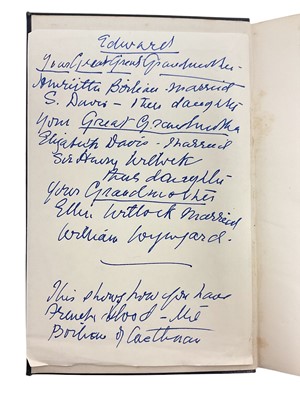 Edward
Your Great Great Grandmother -
Henrietta Boileau - married
S. Davis - Their daughter
Your Great Grandmother
Elizabeth Davis - married
Sir Henry Willock
Their daughter
Your Grandmother
Ellen Willock married
William Wynyard.
This shows how you have
French blood - the
Boileau of